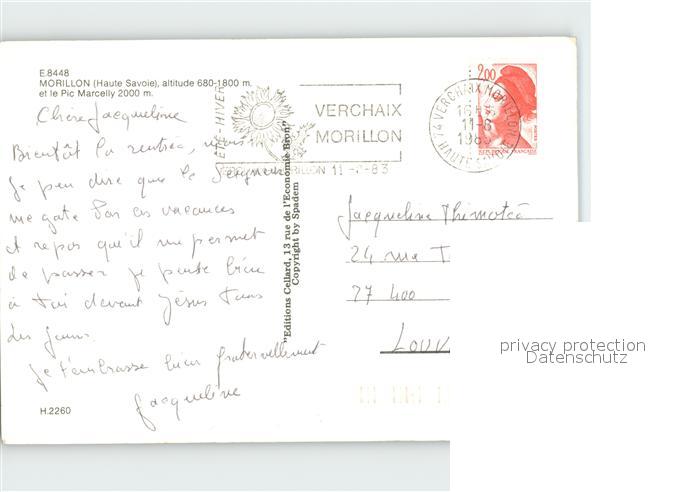 E.8448
MORILLON (Haute Savoie), altitude 680-1800 m.
et le Pic Marcelly 2000 m.
ETE-HIVER
VERCHAIX
MORILLON
MORILLON 11-8-83
74 VERCHAIX MORILLON
HAUTE SAVOIE
11-8
2,00
REPUBLIQUE FRANÇAISE
POSTES
Chère Jacqueline
Bientôt la rentrée,
Je peu dire que le Seigneur
me gate par ces vacances
et repos qu'il me permet
de passer je pense bien
à toi devant Jésus tous
les jours.
Je t'embrasse bien fraternellement
Jacqueline
H.2260
"Editions Cellard, 13 rue de l'Economie Bron"
Copyright by Spadem
Jacqueline Thimotée
24 rue T
27 400
Louv
privacy protection
Datenschutz